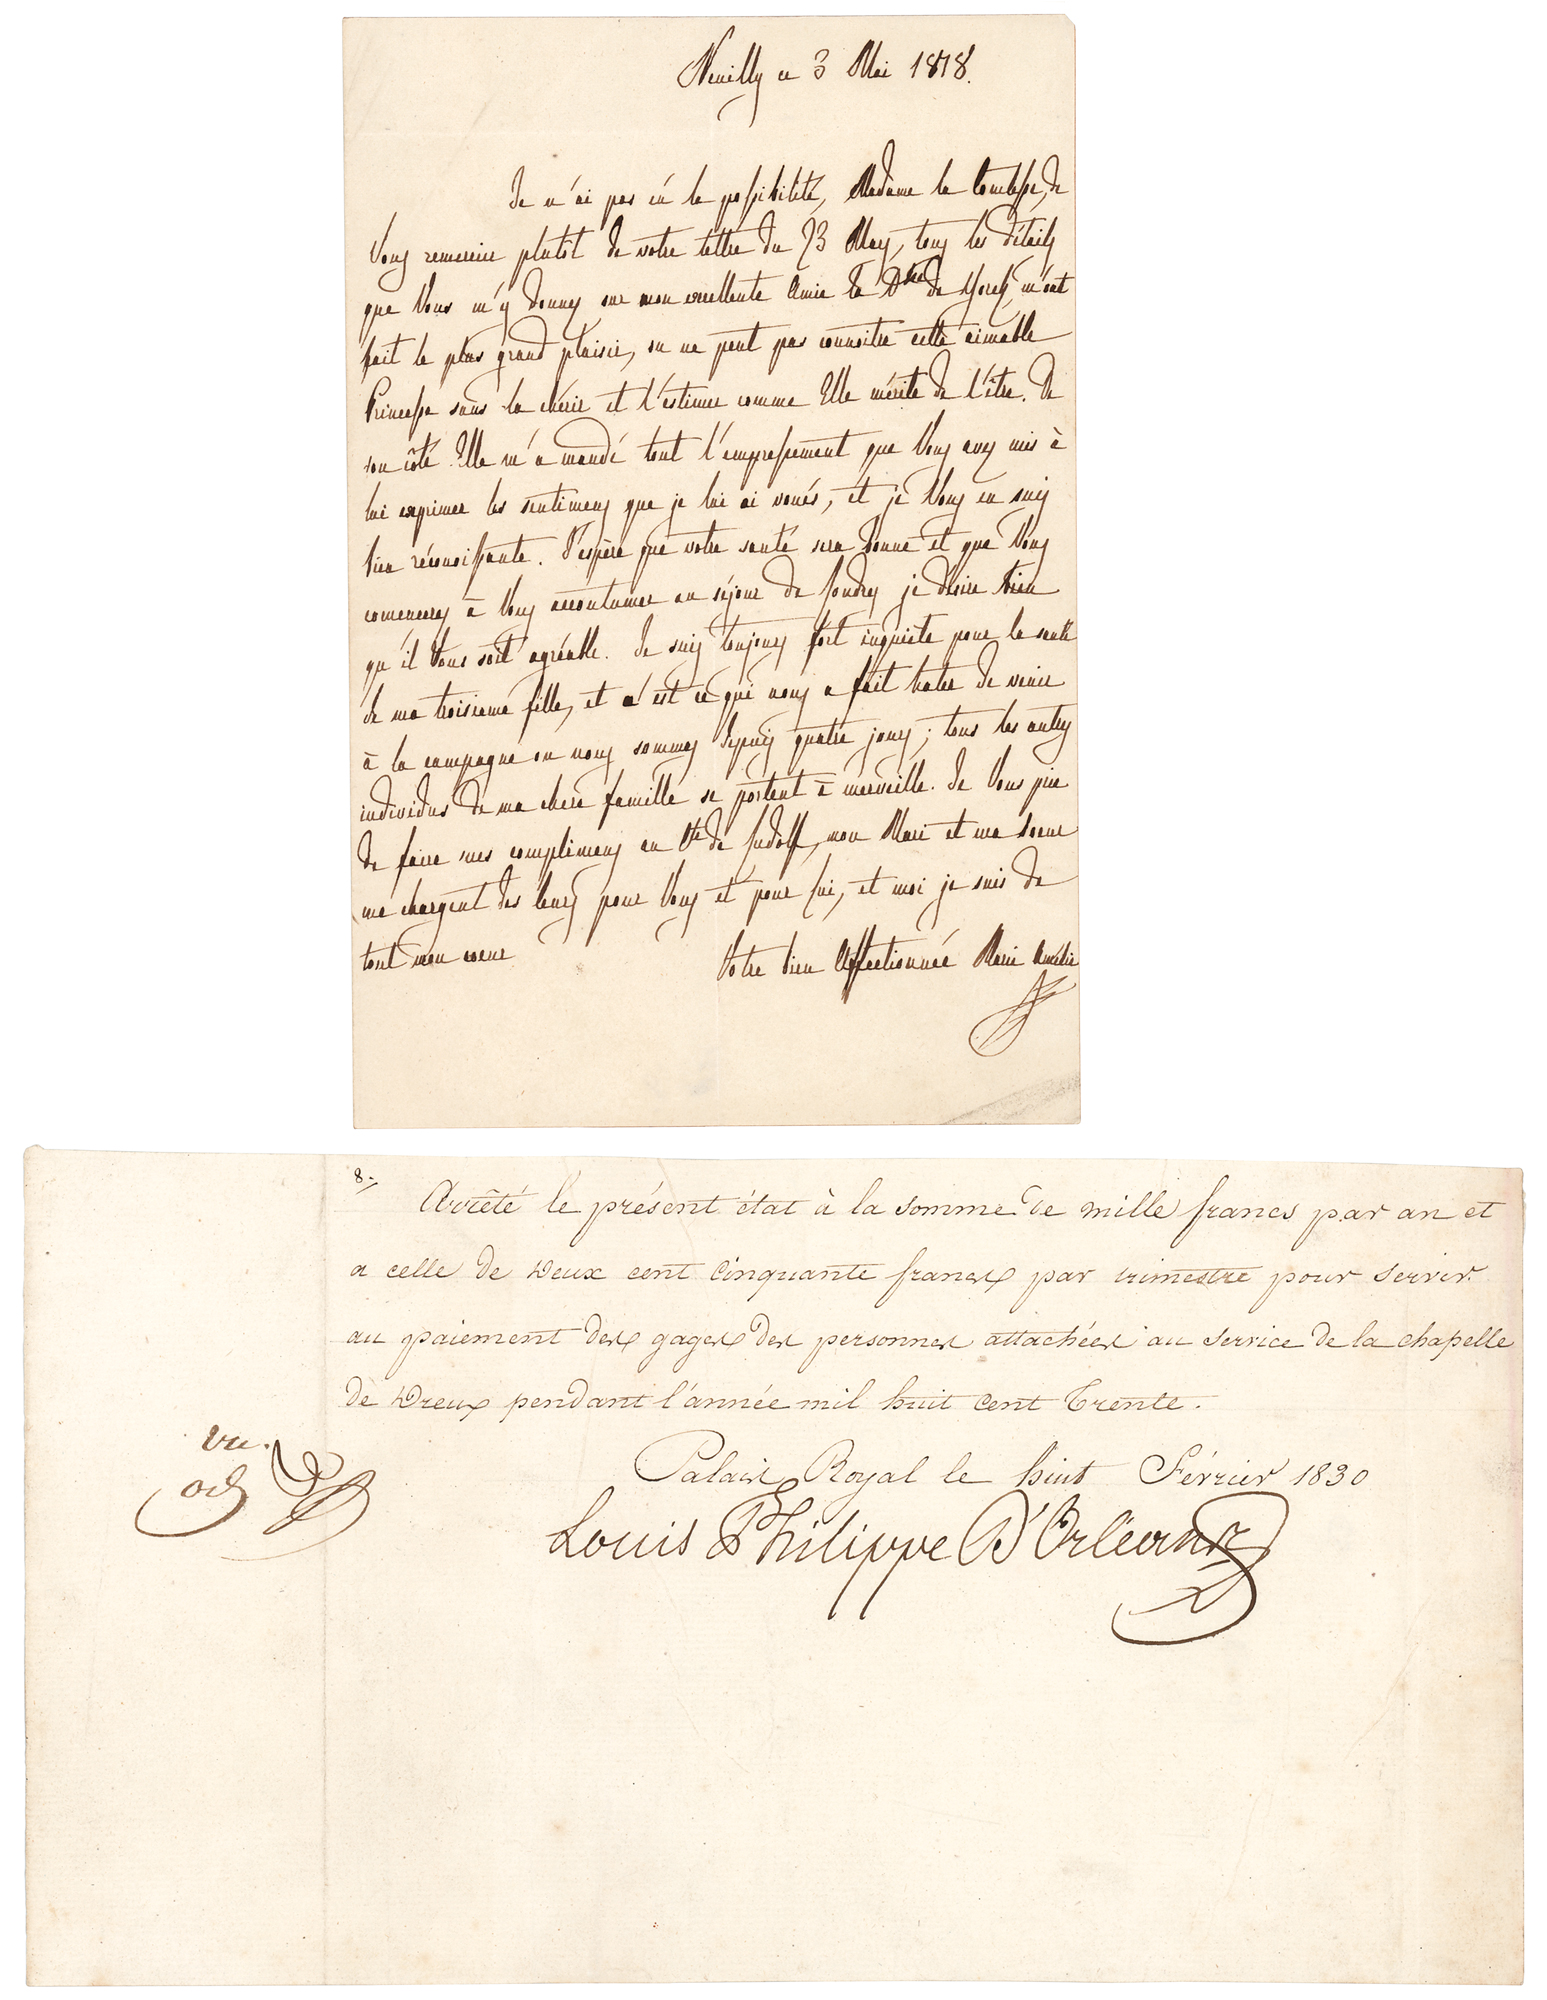 Neuilly ce 3 Mai 1818.
Je n'ai pas eù la possibilité, Madame la Comtesse, de
Vous remercier plutôt de votre lettre du 23 Mars, tous les détails
que Vous m'y donnez sur mon excellente Amie la D.sse de Yorck, m'ont
fait le plus grand plaisir, on ne peut pas connoitre cette aimable
Princesse sans la chérir et l'estimer comme Elle mérite de l'être. De
son côté Elle m'a mandé tout l'empressement que Vous avez mis à
lui exprimer les sentimens que je lui ai voués, et je Vous en suis
bien réconoissante. J'espère que votre santé sera bonne et que Vous
comencerez à Vous accoutumer au séjour de Londres je désire bien
qu'il Vous soit agréable. Je suis toujours fort inquiète pour la santé
de ma troisieme fille, et c'est ce qui nous a fait hater de venir
à la campagne ou nous sommes depuis quatre jours; tous les autres
individus de ma chere famille se portent à merveille. Je Vous prie
de faire mes complimens au Cte de Ludolf, mon Mari et ma Soeur
me chargent des leurs pour Vous et pour Lui, et moi je suis de
tout mon coeur
Votre bien Affectionnée Marie Amélie
8.
Arrêté le présent état à la somme de mille francs par an et
a celle de Deux cent Cinquante francs par trimestre pour servir
au paiement des gages des personnes attachées au service de la chapelle
de Dreux pendant l'année mil huit cent Trente.
vu.
Palais Royal le huit Février 1830
Louis Philippe D'Orléans